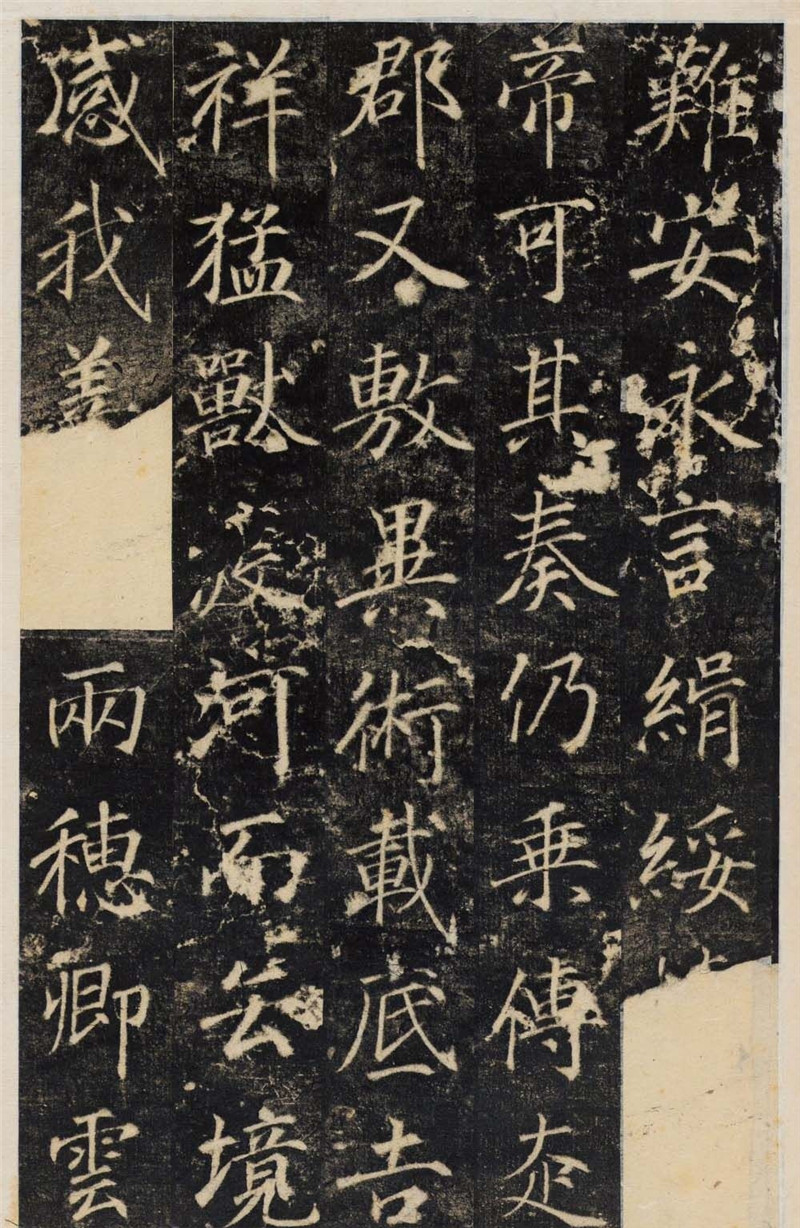 難安永言緝綏
帝可其奏仍乘傳走
郡又敷異術載底吉
祥猛獸浚河而去境
感我
兩穗卿雲